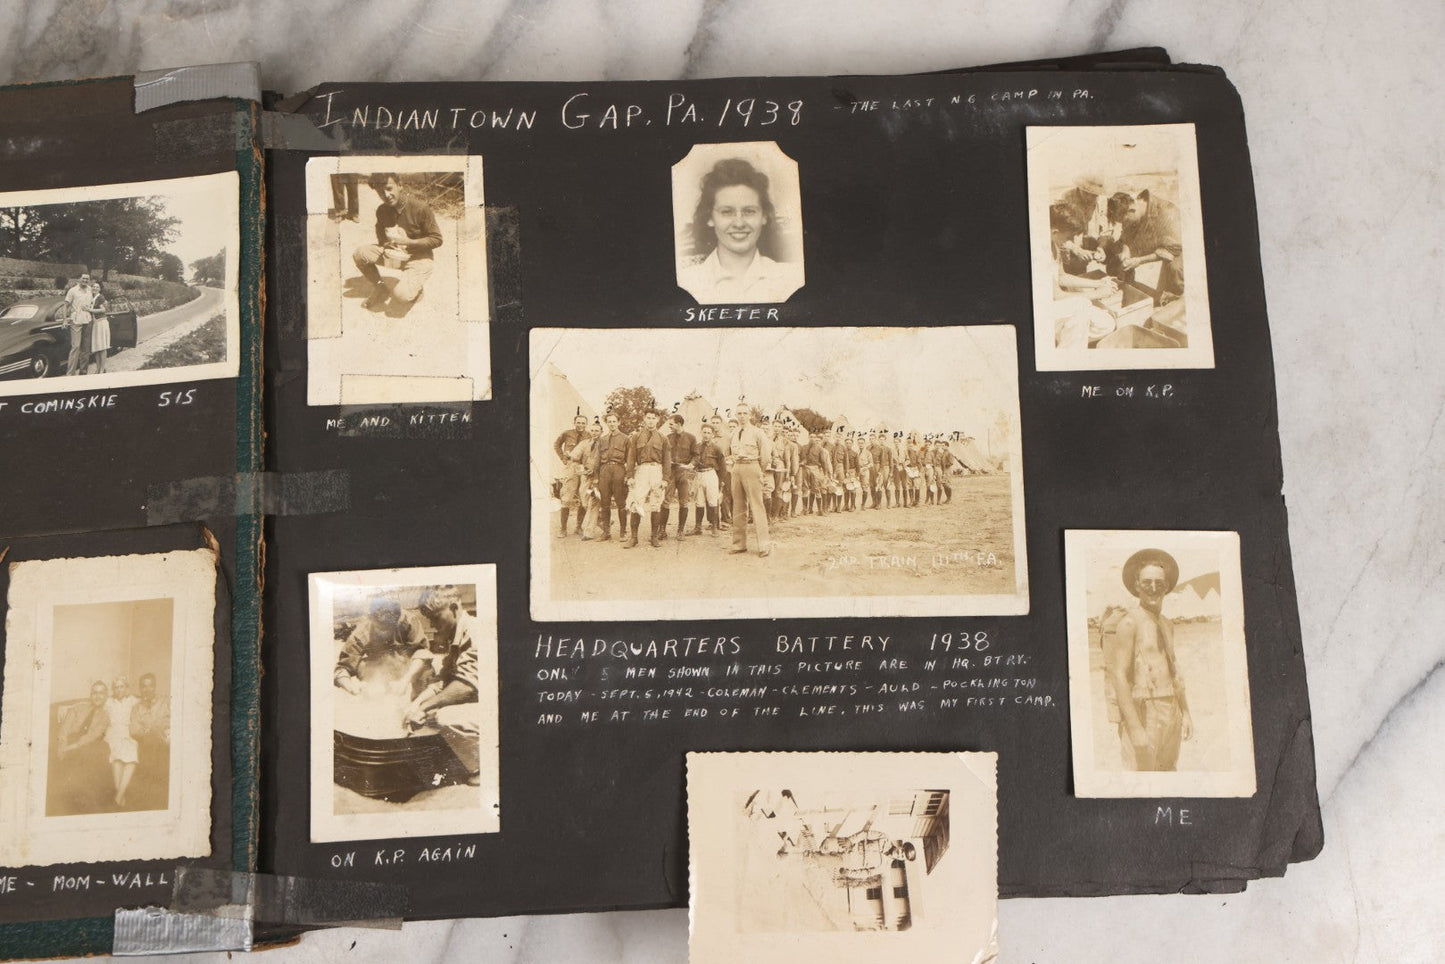 INDIANTOWN GAP, PA. 1938 - THE LAST NG CAMP IN PA.
SKEETER
ME AND KITTEN
ME ON K.P.
T COMINSKIE 515
2ND. TRAIN 111TH. F.A.
HEADQUARTERS BATTERY 1938
ONLY 5 MEN SHOWN IN THIS PICTURE ARE IN HQ. BTRY.
TODAY - SEPT. 5, 1942 - COLEMAN - CLEMENTS - AULD - POCKLINGTON
AND ME AT THE END OF THE LINE. THIS WAS MY FIRST CAMP.
ME
ON K.P. AGAIN
ME - MOM - WALL